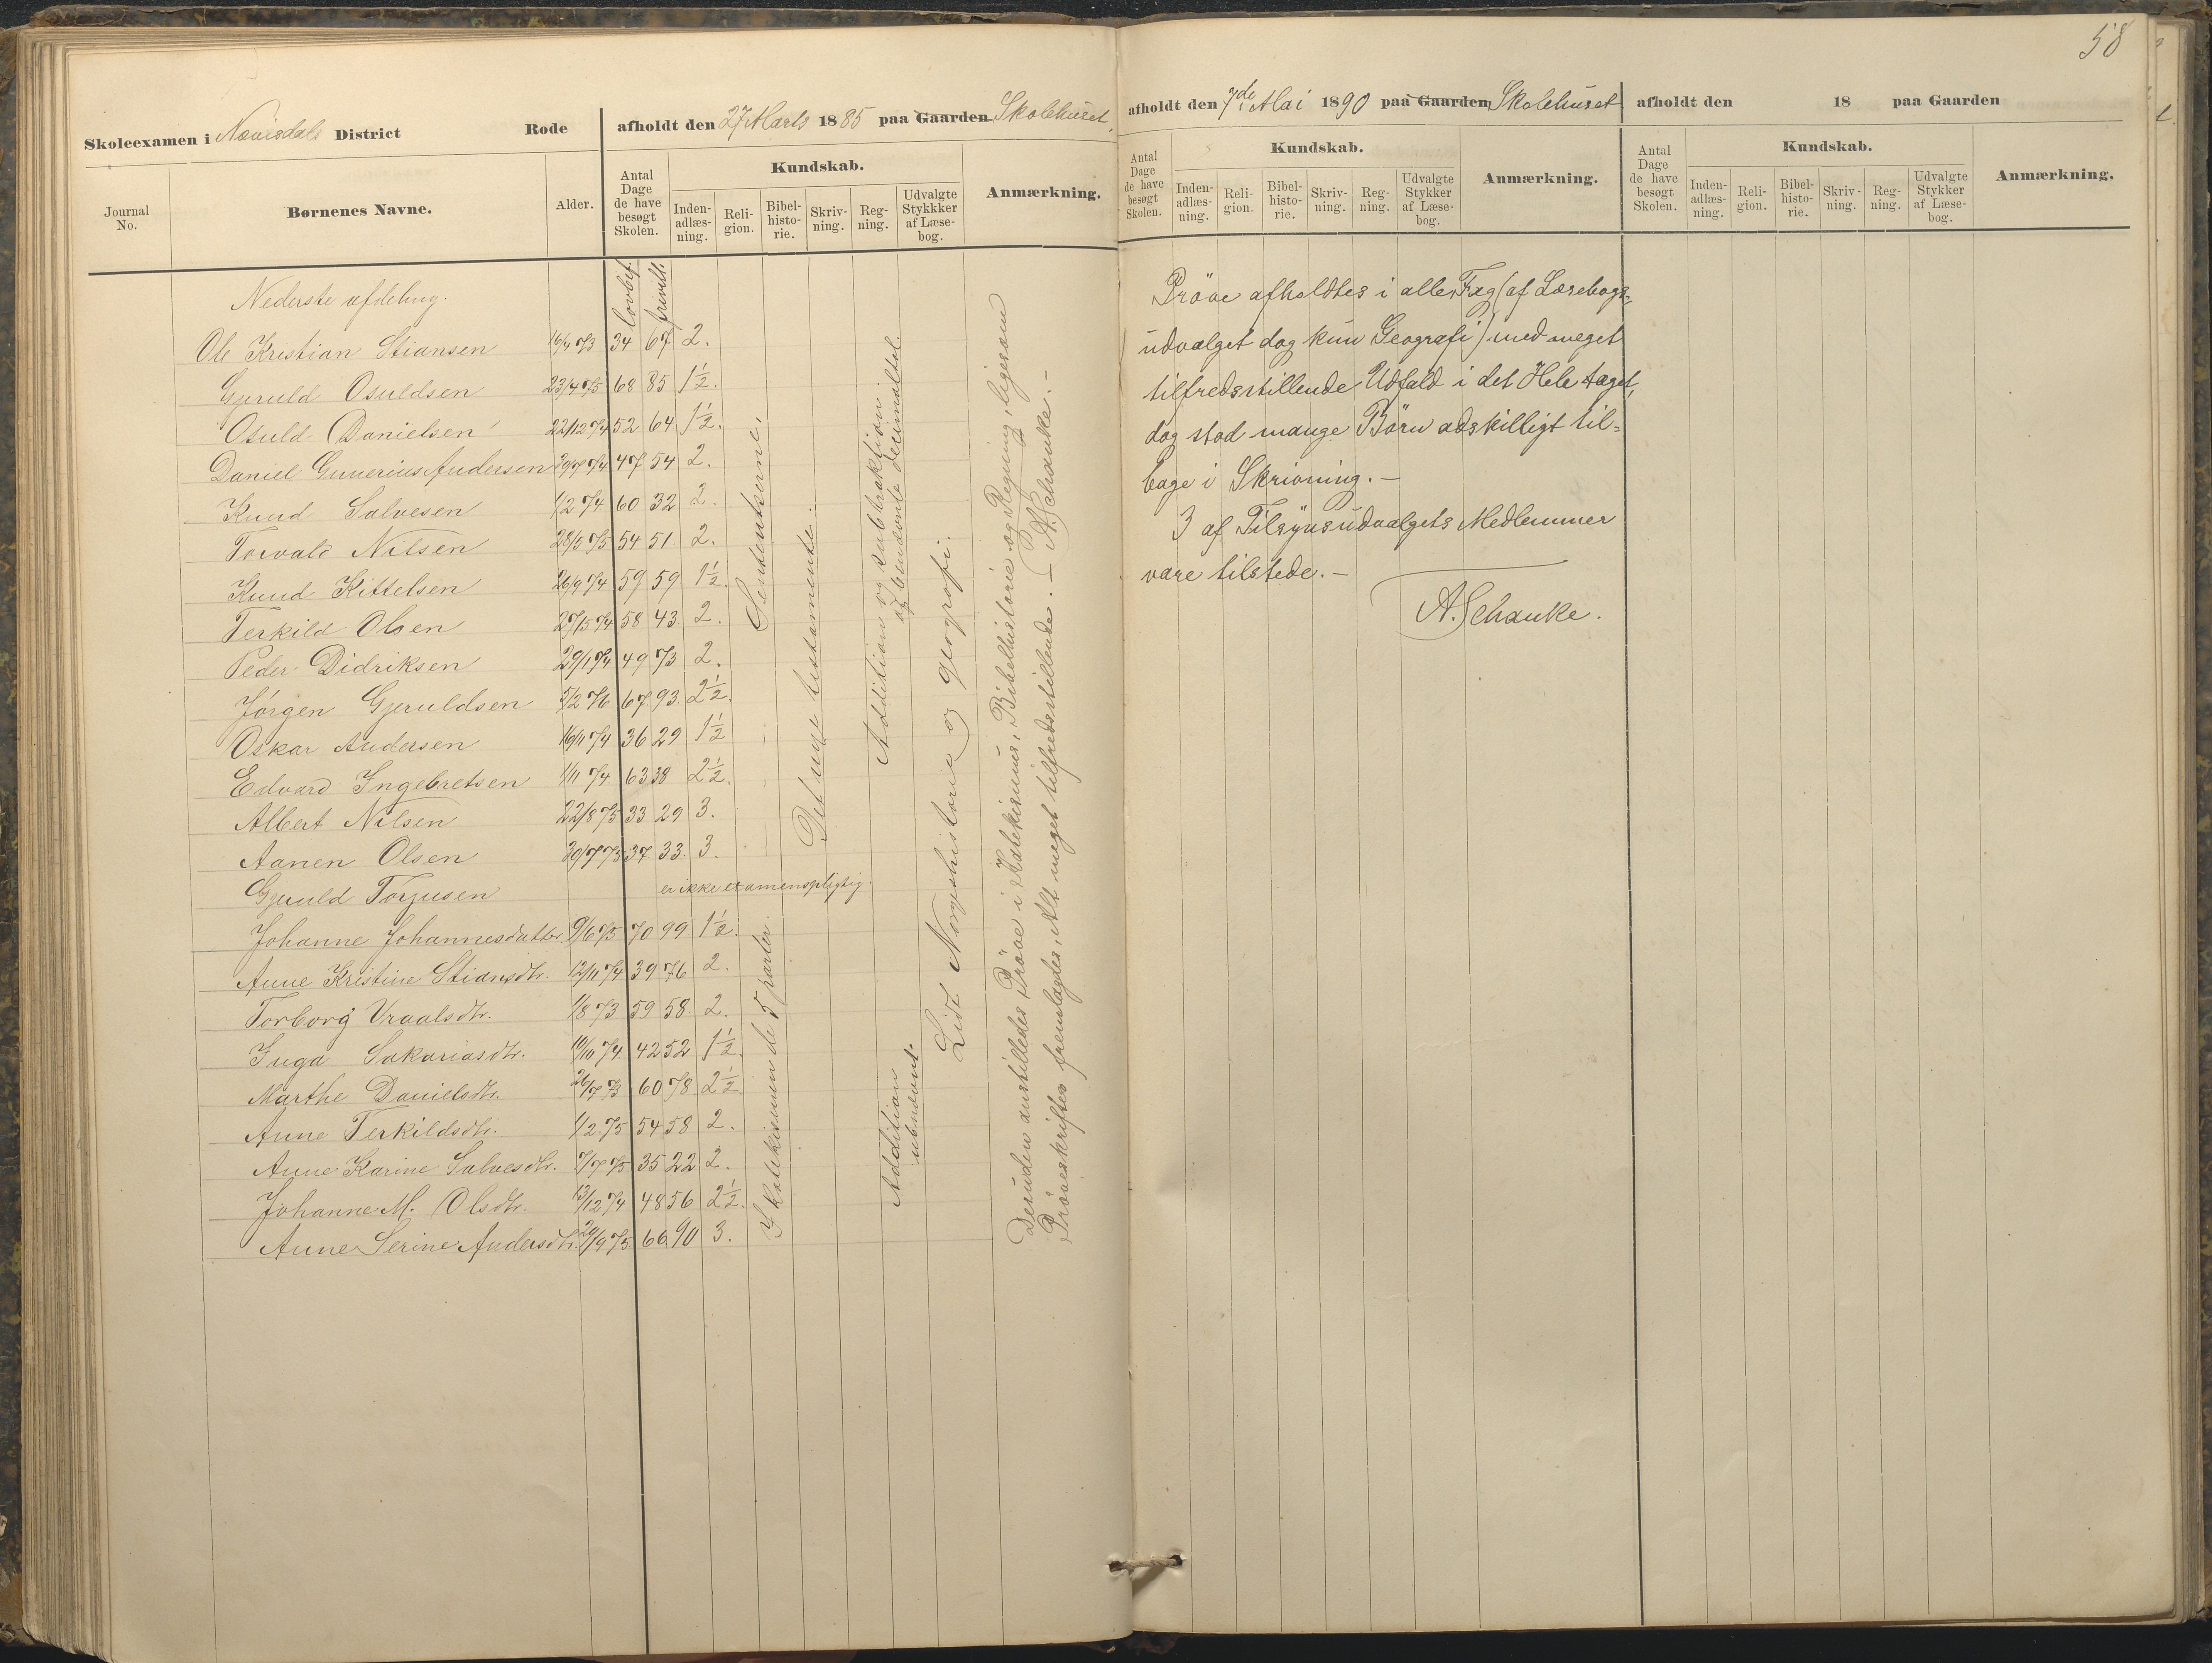 58
Skoleexamen i Nævisdals District Rode afholdt den 27 Marts 1885 paa Gaarden Skolehuset.
Journal No. Børnenes Navne. Alder. Antal Dage de have besøgt Skolen. Kundskab. Indenadlæsning. Religion. Bibelhistorie. Skrivning. Regning. Udvalgte Stykkker af Læsebog. Anmærkning.
Nederste afdeling. lovbef. frivill.
Ole Kristian Stiansen 16/4 73 34 67 2.
Gjeruld Osuldsen 23/4 75 68 85 1½.
Osuld Danielsen 22/12 74 52 64 1½.
Daniel Gunerius Andersen 29/7 74 47 54 2.
Knud Salvesen 1/2 74 60 32 2.
Torvald Nilsen 28/5 75 54 51. 2.
Knud Kittelsen 26/9 74 59 59 1½.
Terkild Olsen 27/5 74 58 43. 2.
Peder Didriksen 29/1 74 49 73 2.
Jørgen Gjeruldsen 5/2 76 67. 93. 2½.
Oskar Andersen 16/11 74 36 29 1½
Edvard Ingebretsen 1/11 74. 63 38 2½.
Albert Nilsen 22/8 75 33 29 3.
Aanen Olsen 30/7 75 37. 33. 3.
Gjeruld Torjusen er ikke examenspligtig.
Johanne Johannesdatter 9/6 75 70 99 1½.
Anne Kristine Stiansdtr. 12/11 74 39 76 2.
Torborg Vraalsdtr. 1/8 73 59 58. 2.
Inga Sakariasdtr. 10/10 74 42 52 1½.
Marthe Danielsdtr. 26/7 73 60 78. 2½
Anne Terkildsdtr. 1/2 75 54 58 2.
Anne Karine Salvesdtr. 7/7 75 35 22 2.
Johanne M. Olsdtr. 13/12 74 48 56 2½.
Anne Serine Andersdtr. 29/9 75 66 90 3.
Sententserne.
I katekismen de 5 parter.
Det nye testamente.
Addition og subtraktion
af benævnte decimaltal.
Addition
ubenævnt.
Lidt Norgeshistorie og geografi.
Desuden anstilledes Prøve i Katekismus, Bibelhistorie og Regning, ligesom
Prøveskrifter fremlagdes, Alt meget tilfredsstillende. – A. Schanke. –
afholdt den 7de Mai 1890 paa Gaarden Skolehuset
Antal Dage de have besøgt Skolen. Kundskab. Indenadlæsning. Religion. Bibelhistorie. Skrivning. Regning. Udvalgte Stykker af Læsebog. Anmærkning.
Prøve afholdtes i alle Fag (af Læsebogs-
udvalget dog kun Geografi) med meget
tilfredsstillende Udfald i det Hele taget,
dog stod mange Børn adskilligt til-
bage i Skrivning. –
3 af Tilsynsudvalgets Medlemmer
vare tilstede. –
A. Schanke.
afholdt den 18 paa Gaarden
Antal Dage de have besøgt Skolen. Kundskab. Indenadlæsning. Religion. Bibelhistorie. Skrivning. Regning. Udvalgte Stykker af Læsebog. Anmærkning.